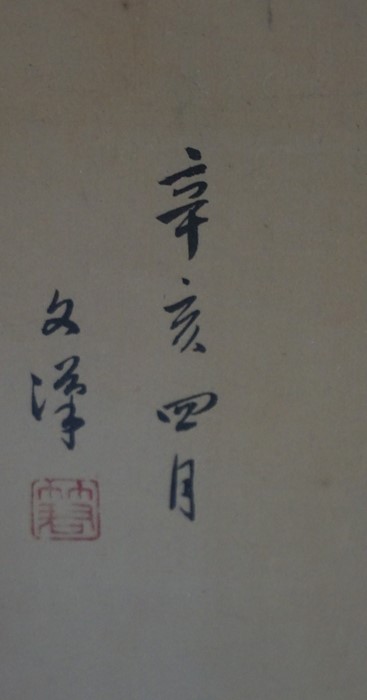 辛亥四月
文漢